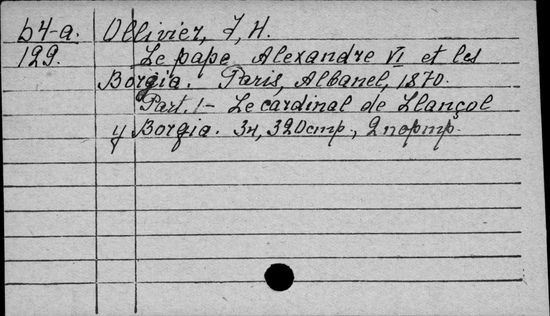 b4-a. Ollivier, J, H.
129. Le pape Alexandre VI et les
Borgia. Paris, Albanel, 1870.
Part. 1- Le cardinal de Llançol
y Borgia. 34, 320cmp., 2nopmp.